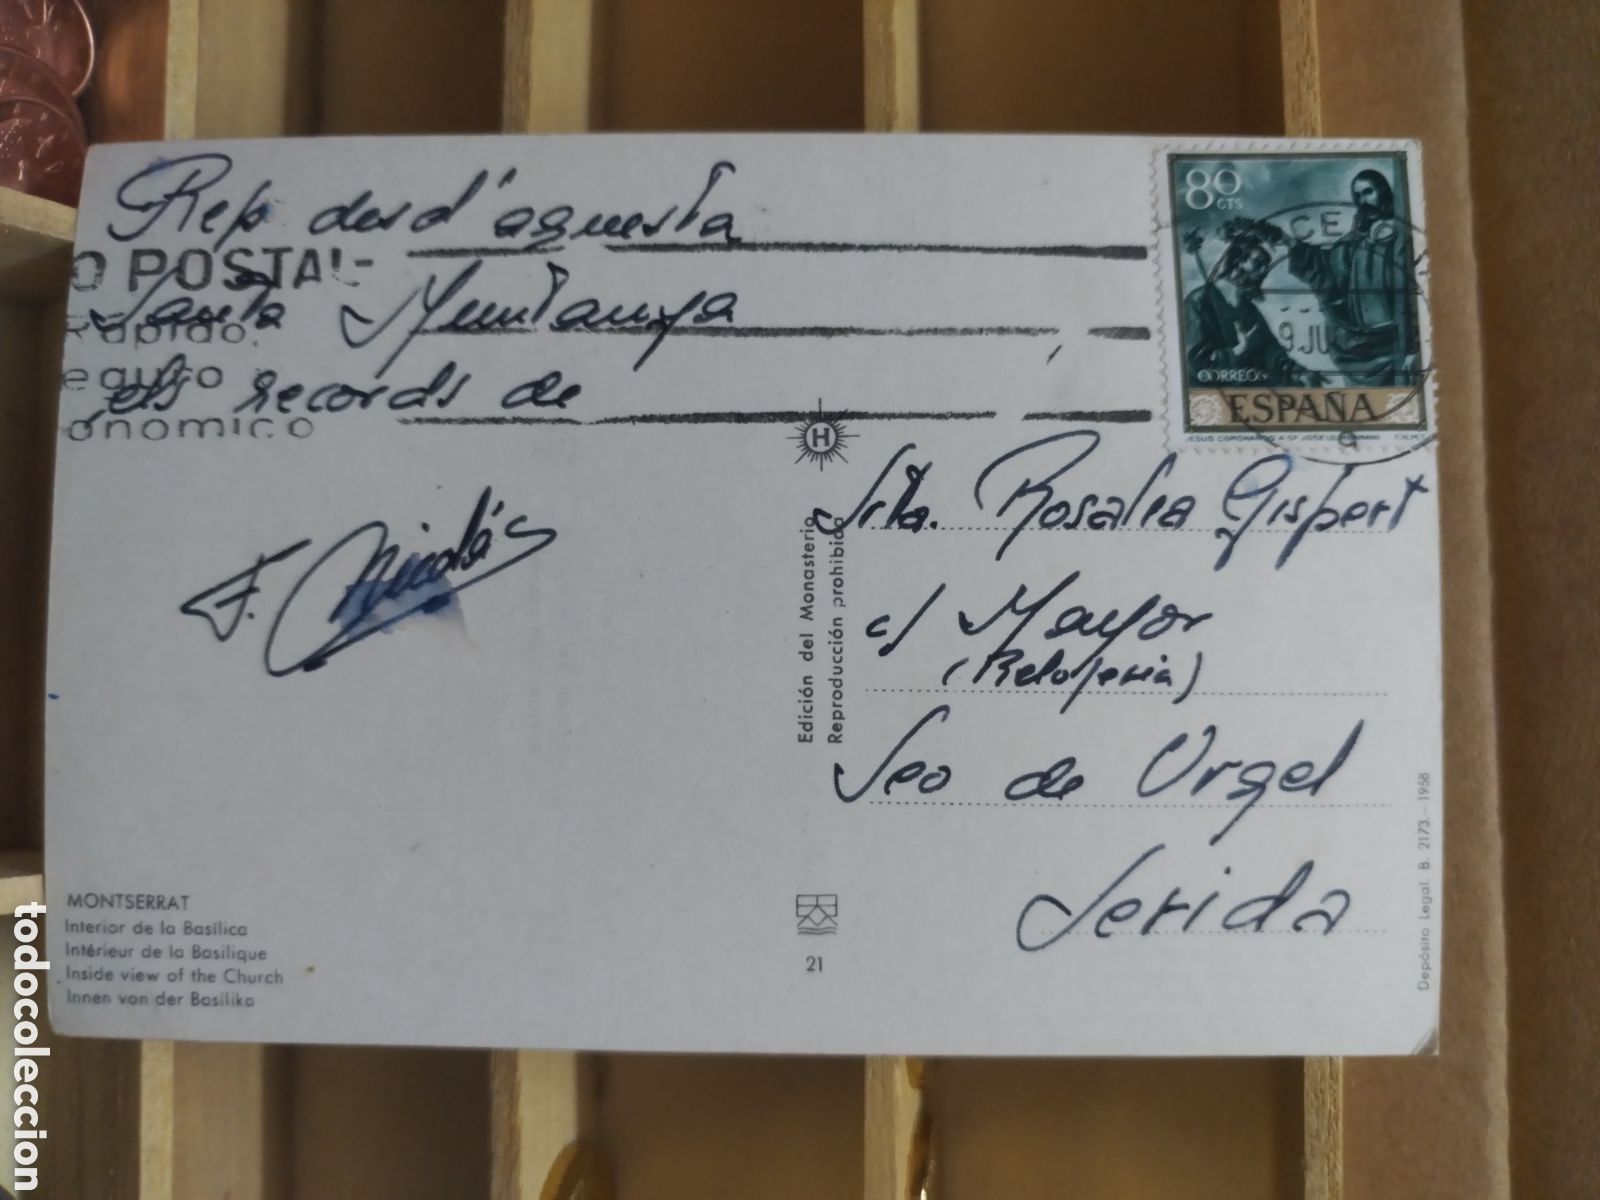 Rep desd'aquesta
Santa Muntanya
els records de
F. Nicolás
O POSTAL
Rápido,
eguro
onómico
80
CTS
CORREOS
ESPAÑA
JESUS CORONANDO A Sn JOSE (ZURBARAN) F.N.M.T.
9 JU
H
Srta. Rosalia Gispert
c/ Mayor
(Relojeria)
Seo de Urgel
Lerida
Edición del Monasterio
Reproducción prohibida
MONTSERRAT
Interior de la Basílica
Intérieur de la Basilique
Inside view of the Church
Innen von der Basilika
21
Depósito Legal. B. 2173.-1958
todocoleccion